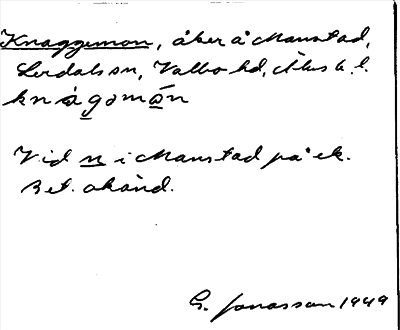 Knaggemon, åker å Manstad,
Lerdals sn, Valbo hd, Älvsb. l.
knágəmán
Vid n i Manstad på ek.
Bet. okänd.
G. Jonasson 1949